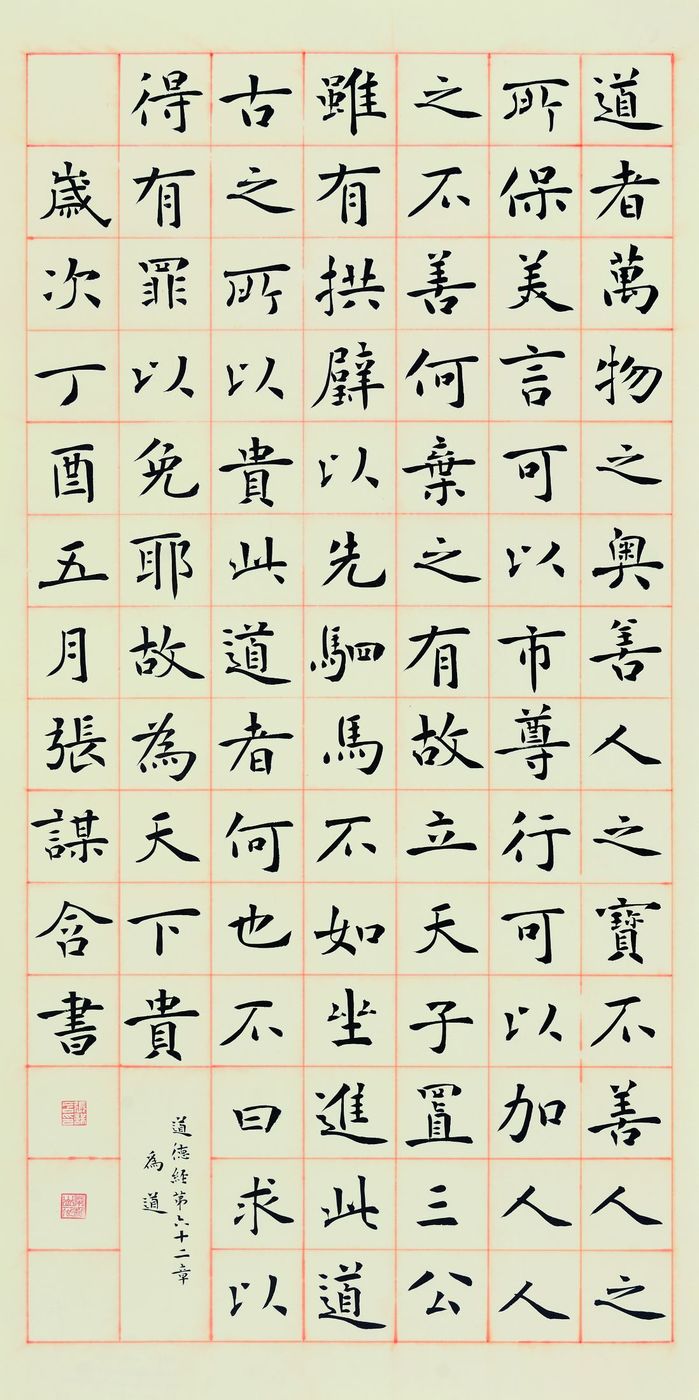 道者萬物之奧善人之寶不善人之
所保美言可以市尊行可以加人人
之不善何棄之有故立天子置三公
雖有拱璧以先駟馬不如坐進此道
古之所以貴此道者何也不曰求以
得有罪以免耶故為天下貴
道德經第六十二章
為道
歲次丁酉五月張謀含書